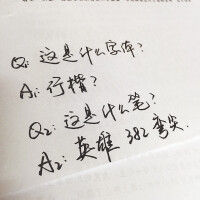 Q1: 这是什么字体?
A1: 行楷?
Q2: 这是什么笔?
A2: 英雄 382 弯尖.